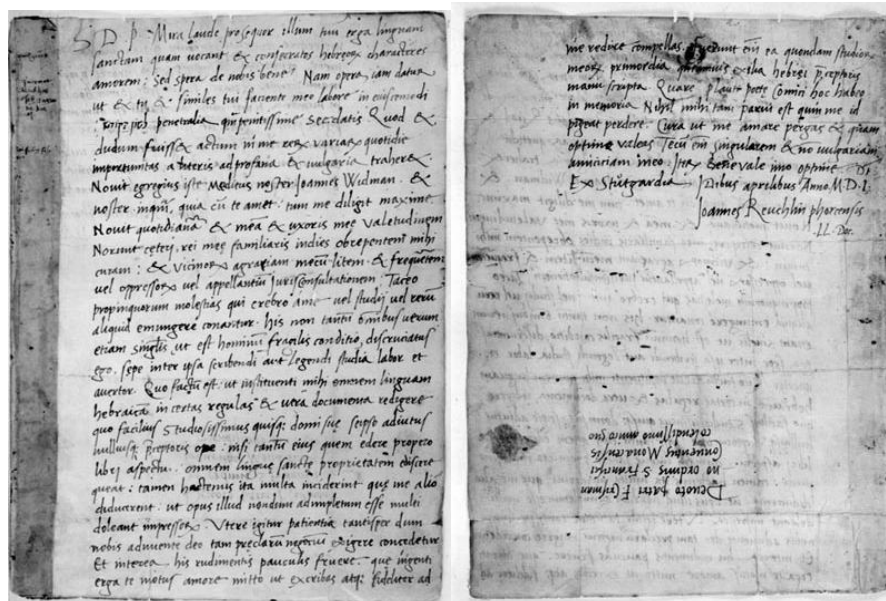 S. D. P. Mira laude prosequor illum tuu erga linguam
sanctam quam vocant & consecratos hebreorum characteres
amorem: Sed spera de nobis bene. Nam opera iam datur
ut & tu & similes tui faciente meo labore in eiuscemodi
penetralia Quod &
dudum fuisset actum ni me variae quotidie
importunitas a literis ad profana & vulgaria traheret.
Novit egregius iste Medicus noster Joannes Widman. &
noster inquam, quia cu te amet: tum me diligit maxime
Novit quotidiana & mea & uxoris mee valetudinem
Norunt ceteri, rei mee familiaris indies obrepentem mihi
curam: & vicinorum agrariam mecu litem. & frequentem
vel oppressorum vel appellantiu Jurisconsultationem. Taceo
propinquorum molestias qui crebro a me vel studij vel rerum
aliquid emungere conantur. his non tantu omnibus verum
etiam singulis ut est hominu fragilis conditio, discruciatus
ego, sepe inter ipsa scribendi aut legendi studia labor et
avertor. Quo factu est: ut instituenti mihi omnem linguam
hebraica in certas regulas & vera documenta redigere
quo facilius studiosissimus quisque domi sue seipso adiutus
nulliusque preceptoris ope: nisi tantu eius quem edere propero
libri aspectu. omnem lingue sancte proprietatem ediscere
queat: tamen hactenus ita multa inciderint que me alio
diduxerant: ut opus illud nondum adimpletum esse multi
doleant impressorum. Utere igitur patientia tantisper dum
nobis adiuvente deo tam preclaru negociu exigere concedetur
Et interea his rudimentis pauculis fruere. que ingenti
erga te motus amore mitto ut exscribas atque fideliter ad
me redire compellas. Fuerunt em ea quondam studiorum
meorum primordia hebrei preceptoris
manu scripta. Quare Plauti poete Comici hoc habeo
in memoria Nihil mihi tam parui est quin me id
pigeat perdere. Cura ut me amare pergas & quam
optime valeas Tecu em singularem & no vulgariam
amiciciam ineo. Iterum Benevale imo optime.
Ex Stutgardia Idibus aprilibus Anno M.D.I.
Joannes Reuchlin phorcensis
LL. Doc.
Devoto patri F
no ordinis S francisci
Conventus Monacensis
colendissimo amico suo